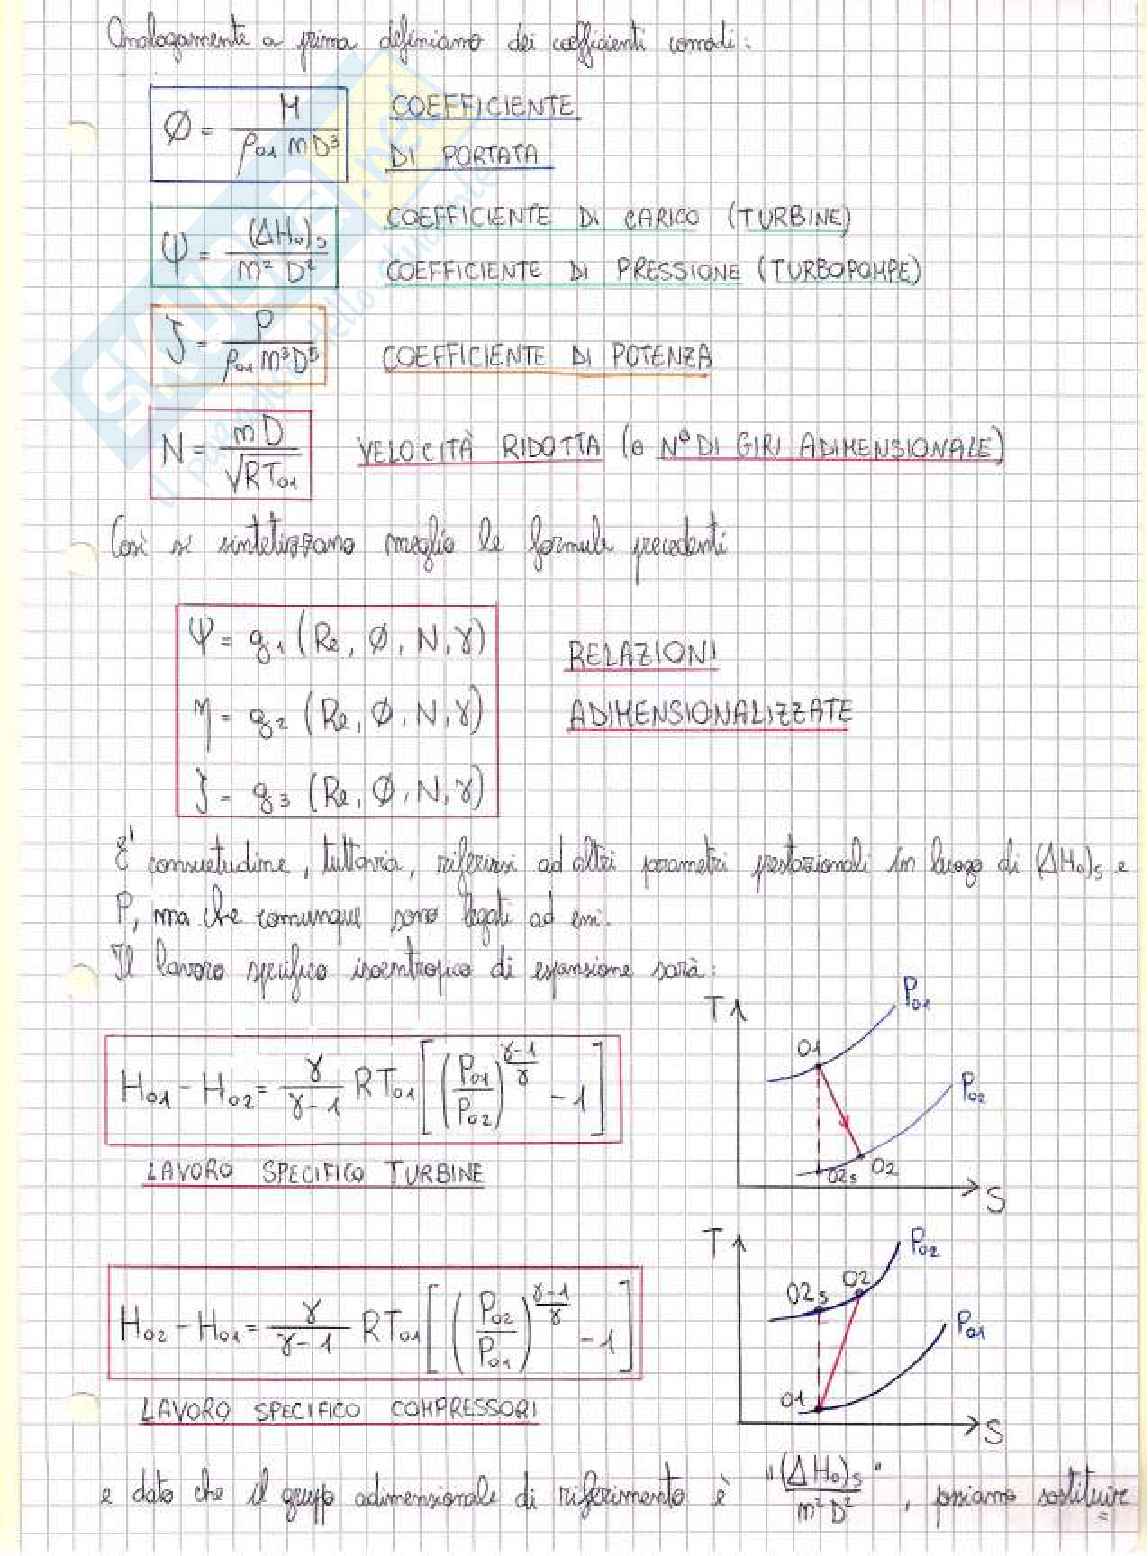 Analogamente a prima definiamo dei coefficienti comodi:
Ø = M / (ρ01 m D³) COEFFICIENTE
DI PORTATA
Ψ = (ΔH0)s / (m² D²) COEFFICIENTE DI CARICO (TURBINE)
COEFFICIENTE DI PRESSIONE (TURBOPOMPE)
ζ = P / (ρ01 m³ D⁵) COEFFICIENTE DI POTENZA
N = mD / √RT01 VELOCITÀ RIDOTTA (o N° DI GIRI ADIMENSIONALE)
Così si sintetizzano meglio le formule precedenti
Ψ = g1 (Re, Ø, N, γ) RELAZIONI
η = g2 (Re, Ø, N, γ) ADIMENSIONALIZZATE
ζ = g3 (Re, Ø, N, γ)
E' consuetudine, tuttavia, riferirsi ad altri parametri prestazionali in luogo di (ΔH0)s e
P, ma che comunque sono legati ad essi.
Il lavoro specifico isoentropico di espansione sarà:
H01 - H02 = γ/(γ-1) RT01 [(P01/P02)^((γ-1)/γ) - 1]
LAVORO SPECIFICO TURBINE
T P01
01
P02
02s 02
S
H02 - H01 = γ/(γ-1) RT01 [(P02/P01)^((γ-1)/γ) - 1]
LAVORO SPECIFICO COMPRESSORI
T P02
02s 02
P01
01
S
e dato che il gruppo adimensionale di riferimento è "(ΔH0)s / (m² D²)", possiamo sostituire